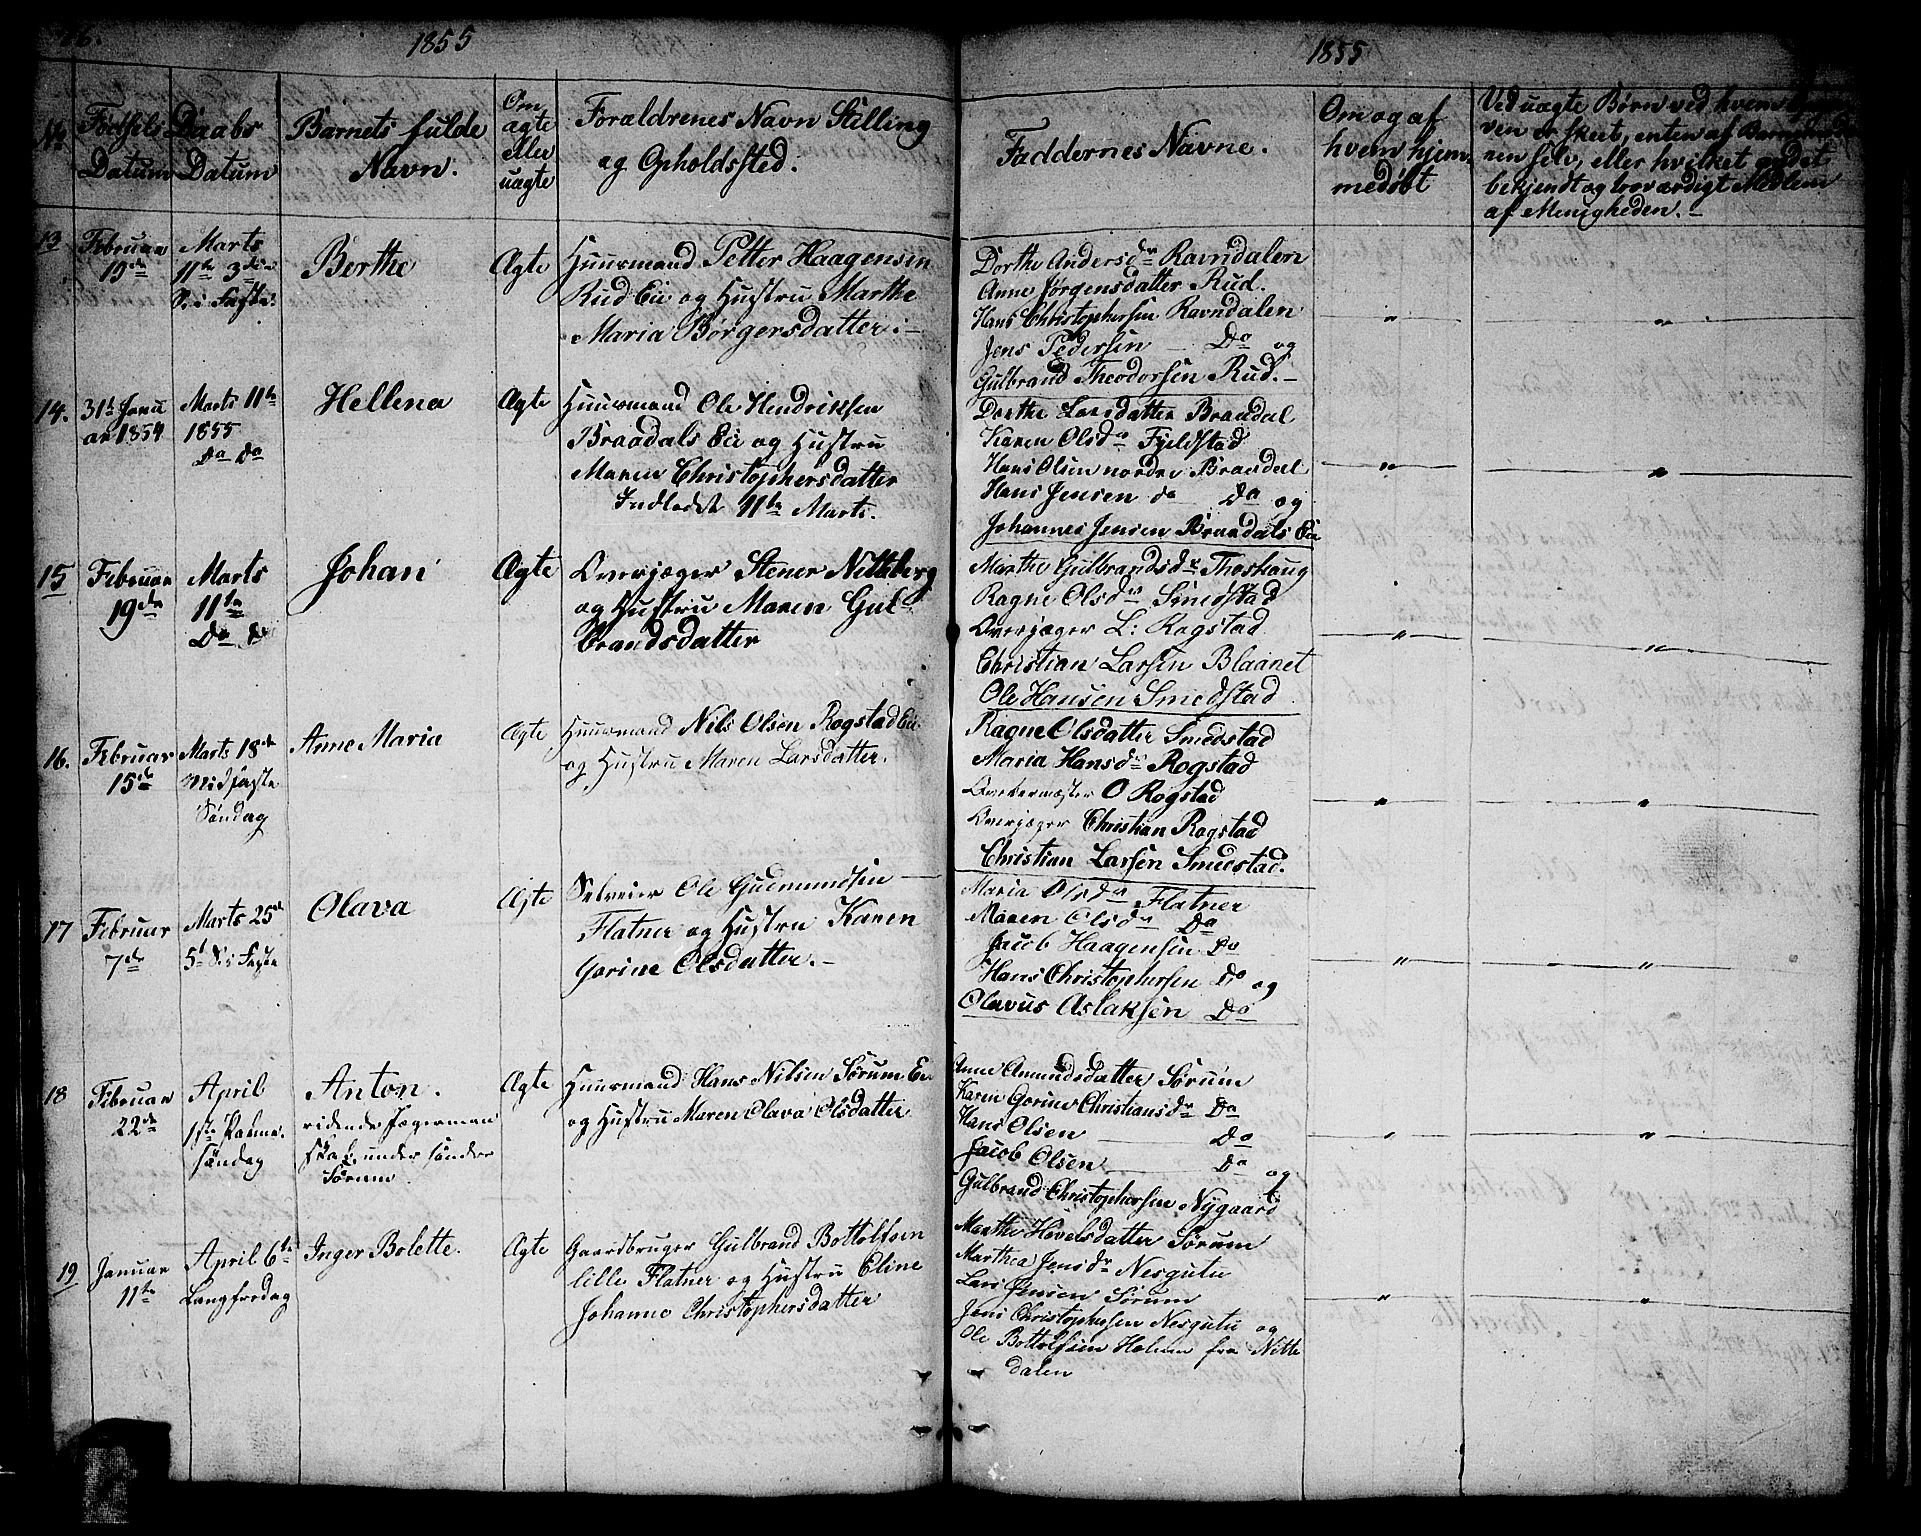 1855
No
Födsels Datum
Daabs Datum
Barnets fulde Navn.
Om ægte eller uægte
Foraldrenes Navn Stilling
og Opholdssted.
13
Februar
19de
Marts
11te 3die
S. i Faste.
Berthe
Ægte
Huusmand Petter Haagensen
Rud Eie og Hustru Marthe
Maria Börgersdatter.
14.
31te Janu
ar 1854
Marts 11te
1855
Do Do
Hellena
Ægte
Huusmand Ole Hendriksen
Braadals Eie og Hustru
Maren Christophersdatter
Indledet 11te Marts.
15
Februar
19de
Marts
11te
Do Do
Johan
Ægte
Overjæger Stener Nitteberg
og Hustru Maren Gul-
brandsdatter
16.
Februar
15de
Marts 18de
Midfaste
Söndag
Anne Maria
Ægte
Huusmand Nils Olsen Rogstad Eie
og Hustru Maren Larsdatter.
17
Februar
7de
Marts 25de
5te S. i Faste
Olava
Ægte
Selveier Ole Gudmundsen
Flatner og Hustru Karen
Gorine Olsdatter.
18
Februar
22de
April
1ste Palme-
söndag
Anton.
ridende Jægerman
skab under söndre
Sörum
Ægte
Huusmand Hans Nilsen Sörum Eie
og Hustru Maren Olava Olsdatter
19
Januar
11te
April 6te
Langfredag
Inger Bolette.
Ægte
Gaardbruger Gulbrand Bottolfsen
lille Flatner og Hustru Eline
Johanne Christophersdatter
1855
Faddernes Navne.
Om og af
hvem hjem-
medöbt
Ved uægte Börn ved hvem
ven er skeet, enten af
nen selv, eller hvilket andet
bekjendt og troværdigt Medlem
af Menigheden.
Dorthe Andersdr Ravndalen
Anne Jörgensdatter Rud.
Hans Christophersen Ravndalen
Jens Pedersen Do og
Gulbrand Theodorsen Rud.
" "
Dorthe Larsdatter Braadal
Karen Olsdr Fjeldstad
Hans Olsen nordre Braadal
Hans Jensen do Do og
Johannes Jensen Braadals Eie
" "
Marthe Gulbrandsdr Thoshaug
Ragne Olsdr Smedstad
Overjæger L: Rogstad
Christian Larsen Blaanet
Ole Hansen Smedstad
" "
Ragne Olsdatter Smedstad
Maria Hansdr Rogstad
O Rogstad
Overjæger Christian Rogstad
Christian Larsen Smedstad.
" "
Maria Olsdr Flatner
Maren Olsdr Do
Jacob Haagensen Do
Hans Christophersen Do og
Olavus Aslaksen Do
" "
Anne Amundsdatter Sörum
Karen Gorine Christiansdr Do
Hans Olsen Do
Jacob Olsen Do og
Gulbrand Christophersen Nygaard
" "
Marthe Hovelsdatter Sörum
Marthea Jensdr Nesgutu
Lars Jensen Sörum
Jens Christophersen Nesgutu og
Ole Bottolfsen Holum fra Nitte
dalen
" "